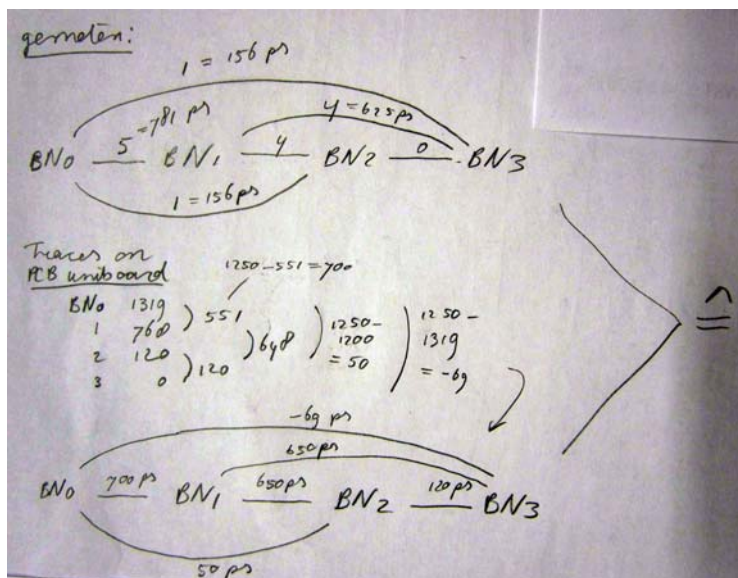 gemeten:
1 = 156 ps
= 781 ps
4 = 625 ps
BN0 — 5 — BN1 — 4 — BN2 — 0 — BN3
1 = 156 ps
Traces on
PCB uniboard
1250 – 551 = 700
BN0 1319
1 768
2 120
3 0
) 551
) 120
) 648
) 1250 –
1200
= 50
) 1250 –
1319
= -69
≙
-69 ps
650 ps
BN0 — 700 ps — BN1 — 650 ps — BN2 — 120 ps — BN3
50 ps